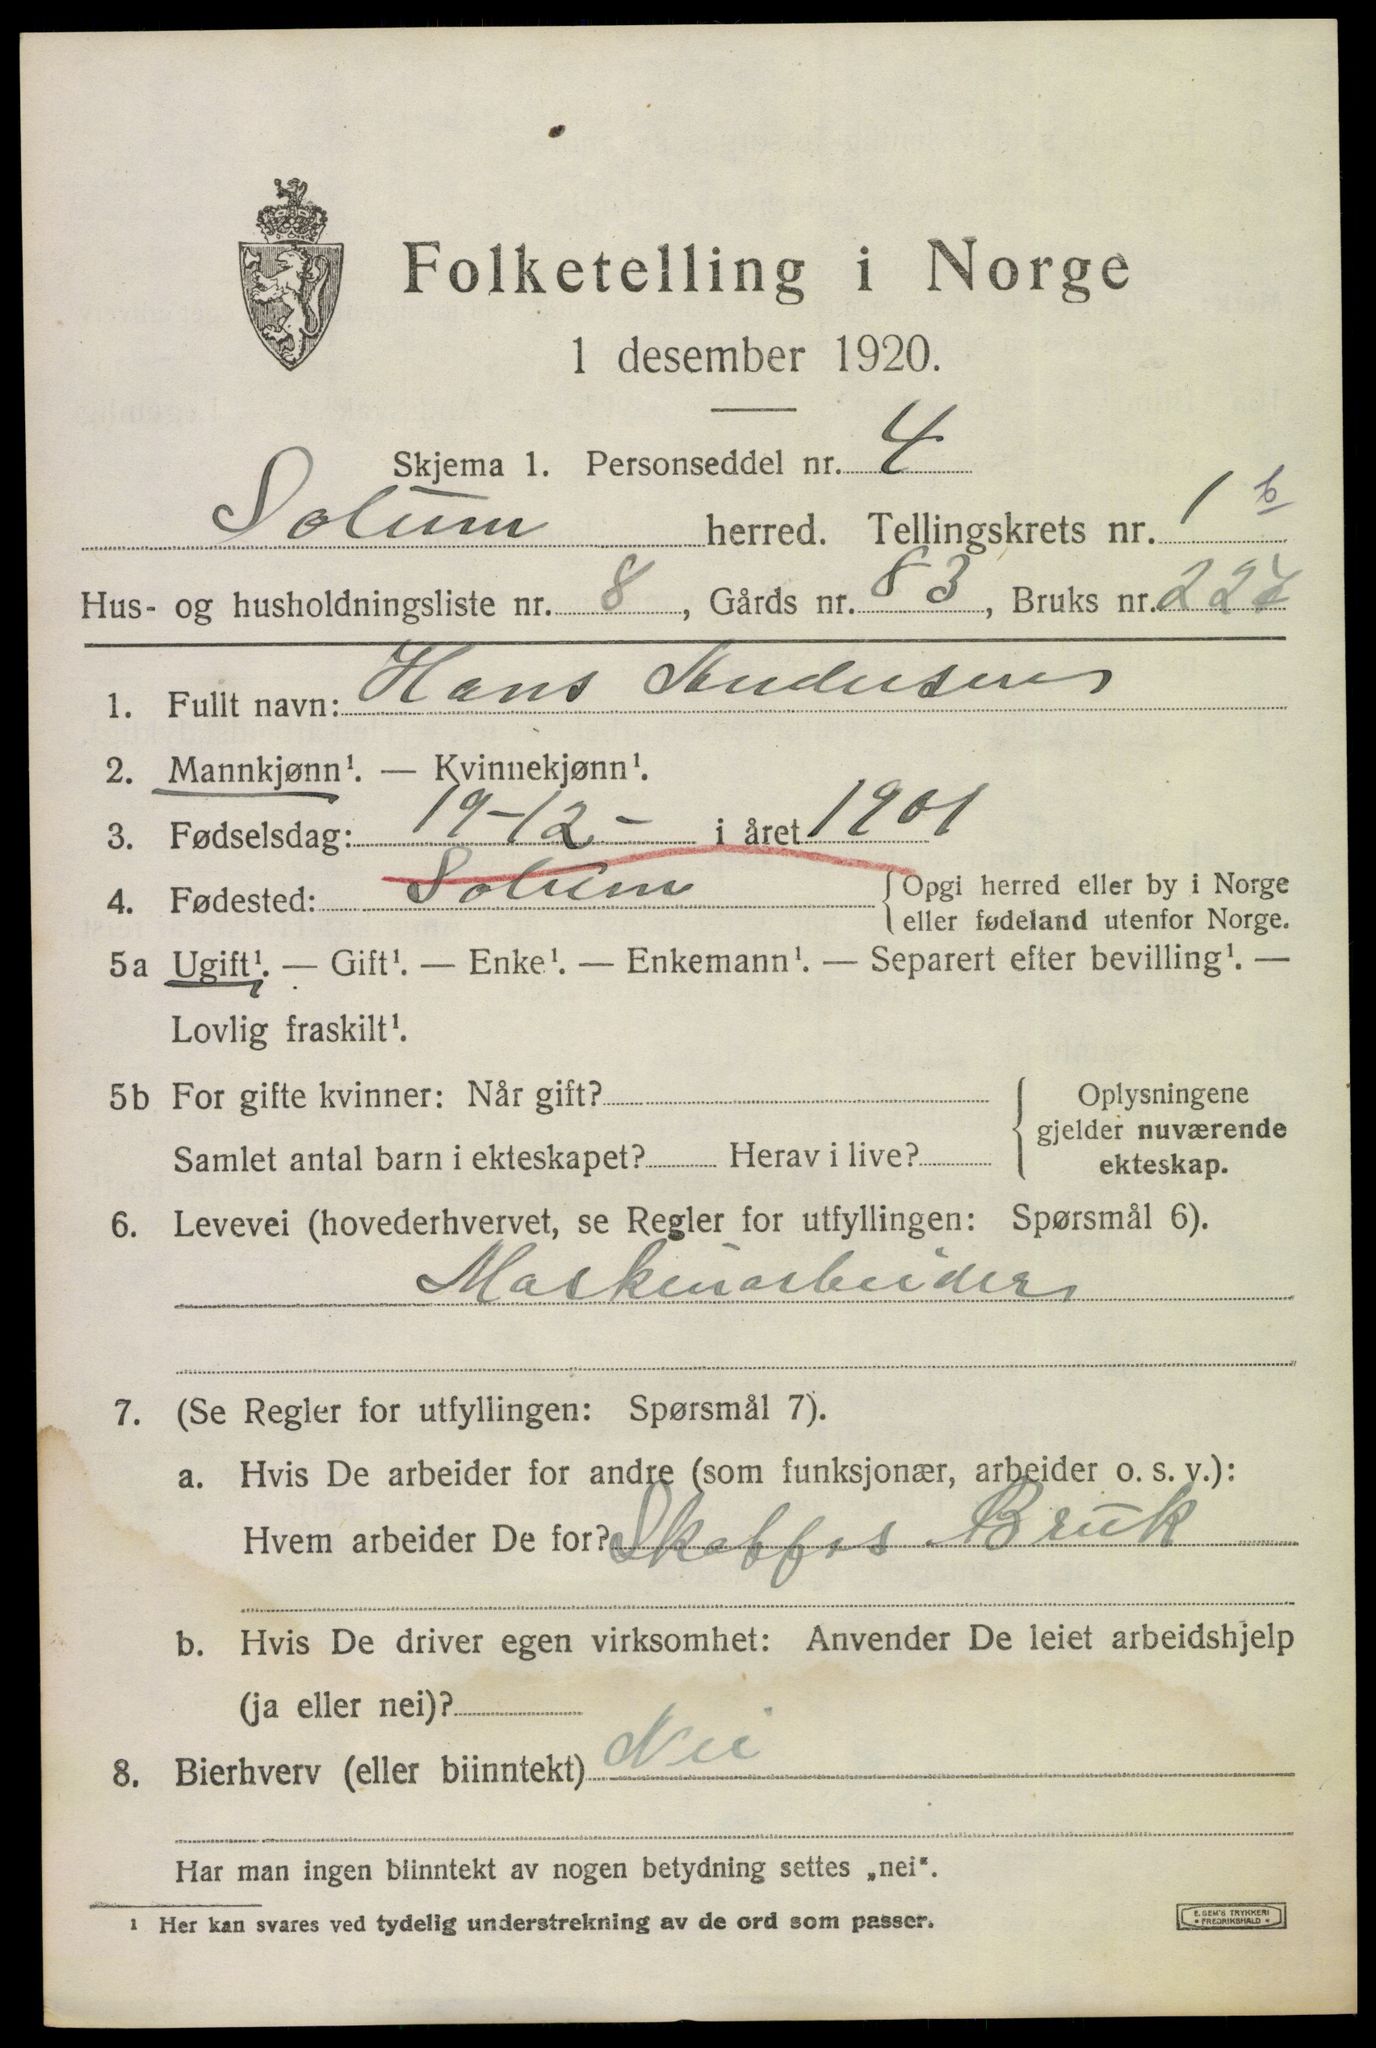 Folketelling i Norge
1 desember 1920.
Skjema 1. Personseddel nr. 4
Solum herred. Tellingskrets nr. 1 b
Hus- og husholdningsliste nr. 8, Gårds nr. 83, Bruks nr. 227
1. Fullt navn: Hans Andersen
2. Mannkjønn¹. — Kvinnekjønn¹.
3. Fødselsdag: 19-12- i året 1901
4. Fødested: Solum {Opgi herred eller by i Norge
eller fødeland utenfor Norge.
5a Ugift¹. — Gift¹. — Enke¹. — Enkemann¹. — Separert efter bevilling¹. —
Lovlig fraskilt¹.
5b For gifte kvinner: Når gift?
Samlet antal barn i ekteskapet? Herav i live?
Oplysningene
gjelder nuværende
ekteskap.
6. Levevei (hovederhvervet, se Regler for utfyllingen: Spørsmål 6).
Maskinarbeider
7. (Se Regler for utfyllingen: Spørsmål 7).
a. Hvis De arbeider for andre (som funksjonær, arbeider o. s. v.):
Hvem arbeider De for? Skotfos Bruk
b. Hvis De driver egen virksomhet: Anvender De leiet arbeidshjelp
(ja eller nei)?
8. Bierhverv (eller biinntekt) Nei
Har man ingen biinntekt av nogen betydning settes „nei".
¹ Her kan svares ved tydelig understrekning av de ord som passer.
E. SEM'S TRYKKERI
* FREDRIKSHALD *